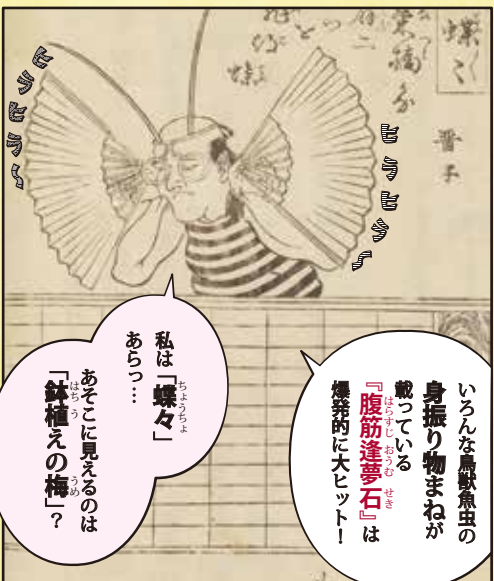 蝶々
晋子
ヒラヒラ〜
ヒラヒラ〜
いろんな鳥獣魚虫の
身振り物まねが
載っている
『腹筋逢夢石』は
はらすじ おうむ せき
爆発的に大ヒット！
私は「蝶々」
ちょうちょ
あらっ…
あそこに見えるのは
「鉢植えの梅」？
はちう うめ